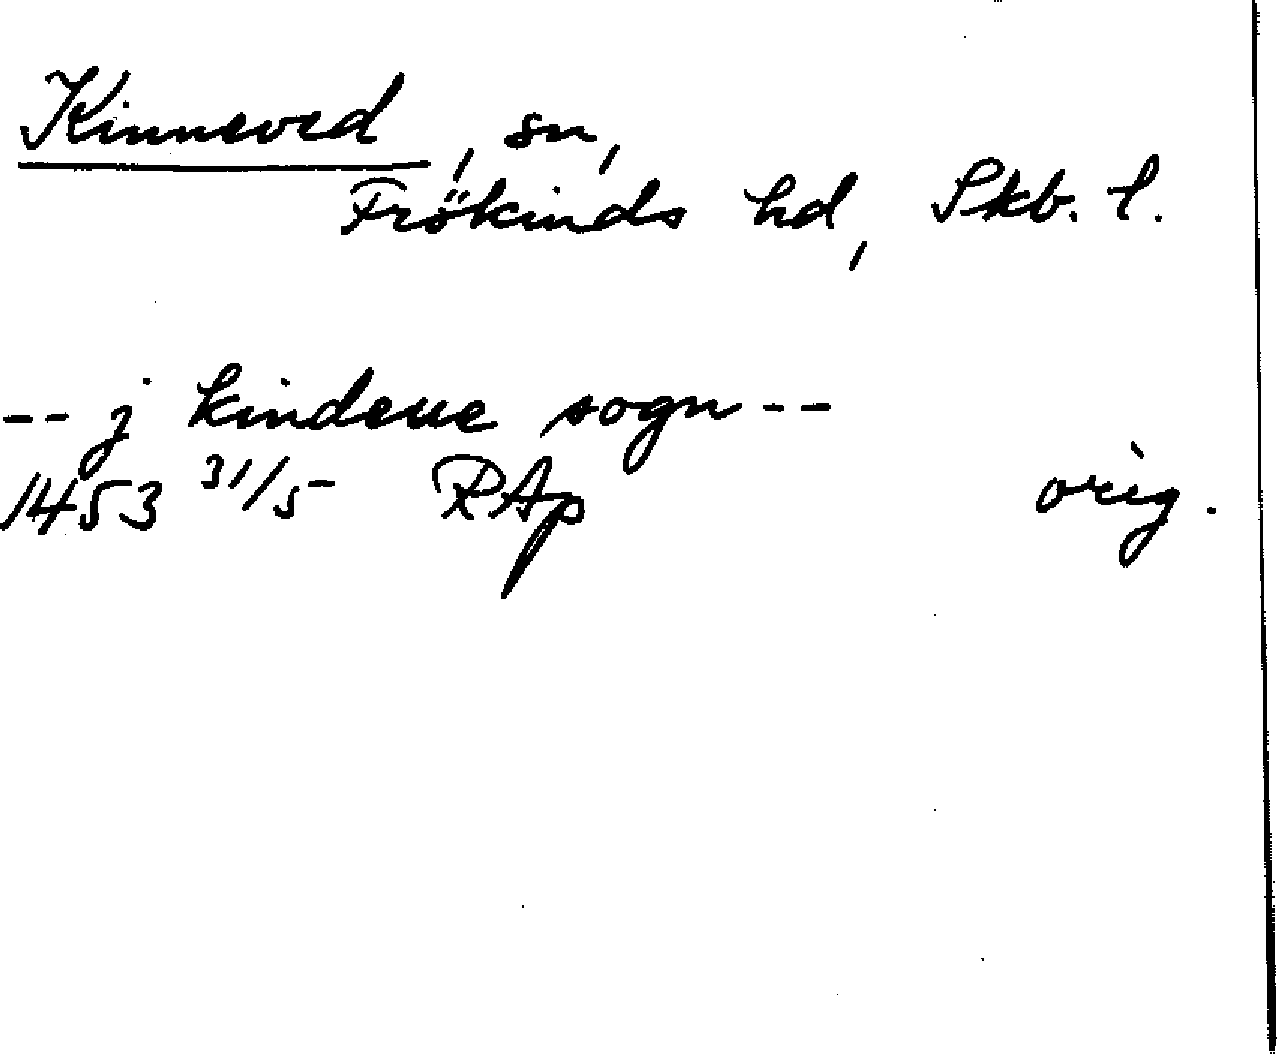 Kinneved, sn,
Frökinds hd, Skb. l.
-- j kindeue sogn --
1453 31/5 RAp orig.